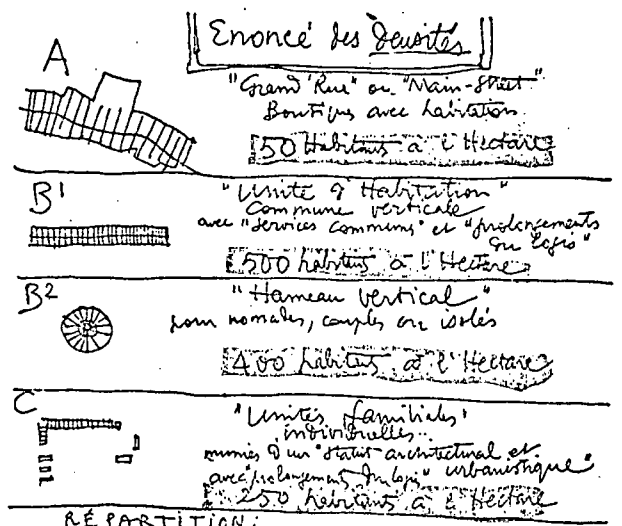 Enoncé des Densités
A
"Grand'Rue" ou "Main-Street"
Boutiques avec habitation
50 Habitants à l'Hectare
B1
"Unité d'Habitation"
Commune verticale
avec "services communs" et "prolongements
du logis"
500 habitants à l'Hectare
B2
"Hameau vertical"
pour nomades, couples ou isolés
400 habitants à l'Hectare
C
"Unités familiales"
individuelles
munies d'un "statut architectural et
urbanistique"
avec "prolongements du logis"
250 habitants à l'Hectare
RÉPARTITION: